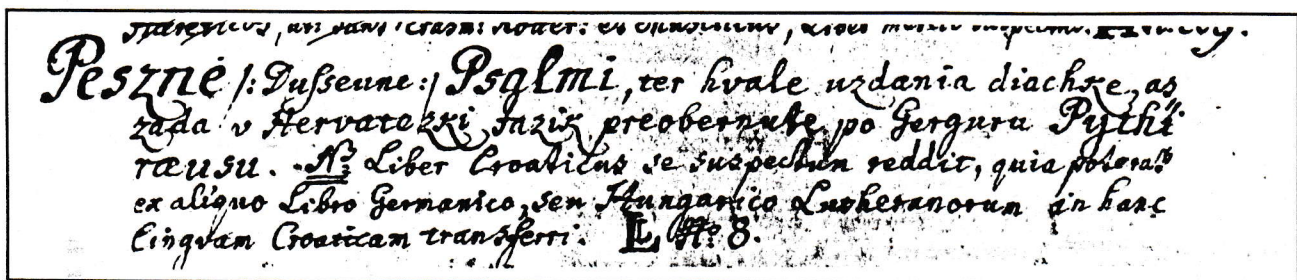 Peszné /: Dusseune :/ Psalmi, ter hvale uzdania diachke, as
zada v Hervatczki Jazik preobernute, po Gerguru Pythi
ræusu. N: Liber Croaticus se suspectum reddit, quia poterat
ex aliquo Libro Germanico, seu Hungarico Lutheranorum in hanc
Lingvam Croaticam transferri. L No 8.